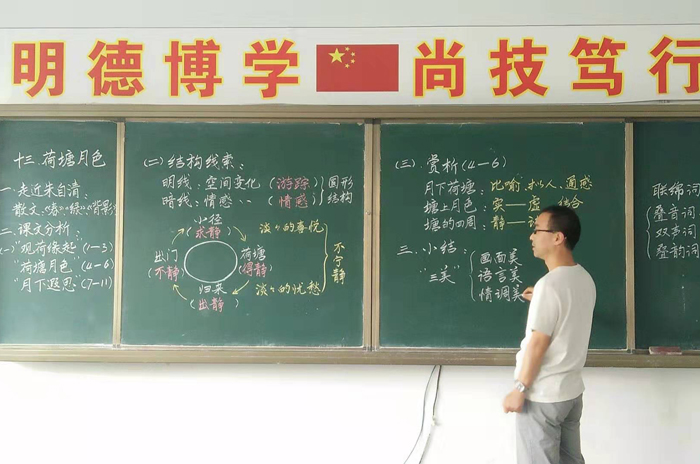 明德博学 尚技笃行
十三、荷塘月色
一、走近朱自清:
散文、《春》《绿》《背影》
二、课文分析:
(一)"观荷缘起"(1—3)
"荷塘月色"(4—6)
"月下遐思"(7—11)
(二)结构线索:
明线:空间变化(游踪)
暗线:情感‥(情感)
圆形
结构
小径
(求静)
淡々的喜悦
出门
(不静)
荷塘
(得静)
不宁静
归来
(出静)
淡々的忧愁
(三)赏析(4—6)
月下荷塘:比喻、拟人、通感
塘上月色:实—虚 结合
塘的四周:静—
三、小结:
"三美"
画面美
语言美
情调美
联绵词
叠音词
双声词
叠韵词